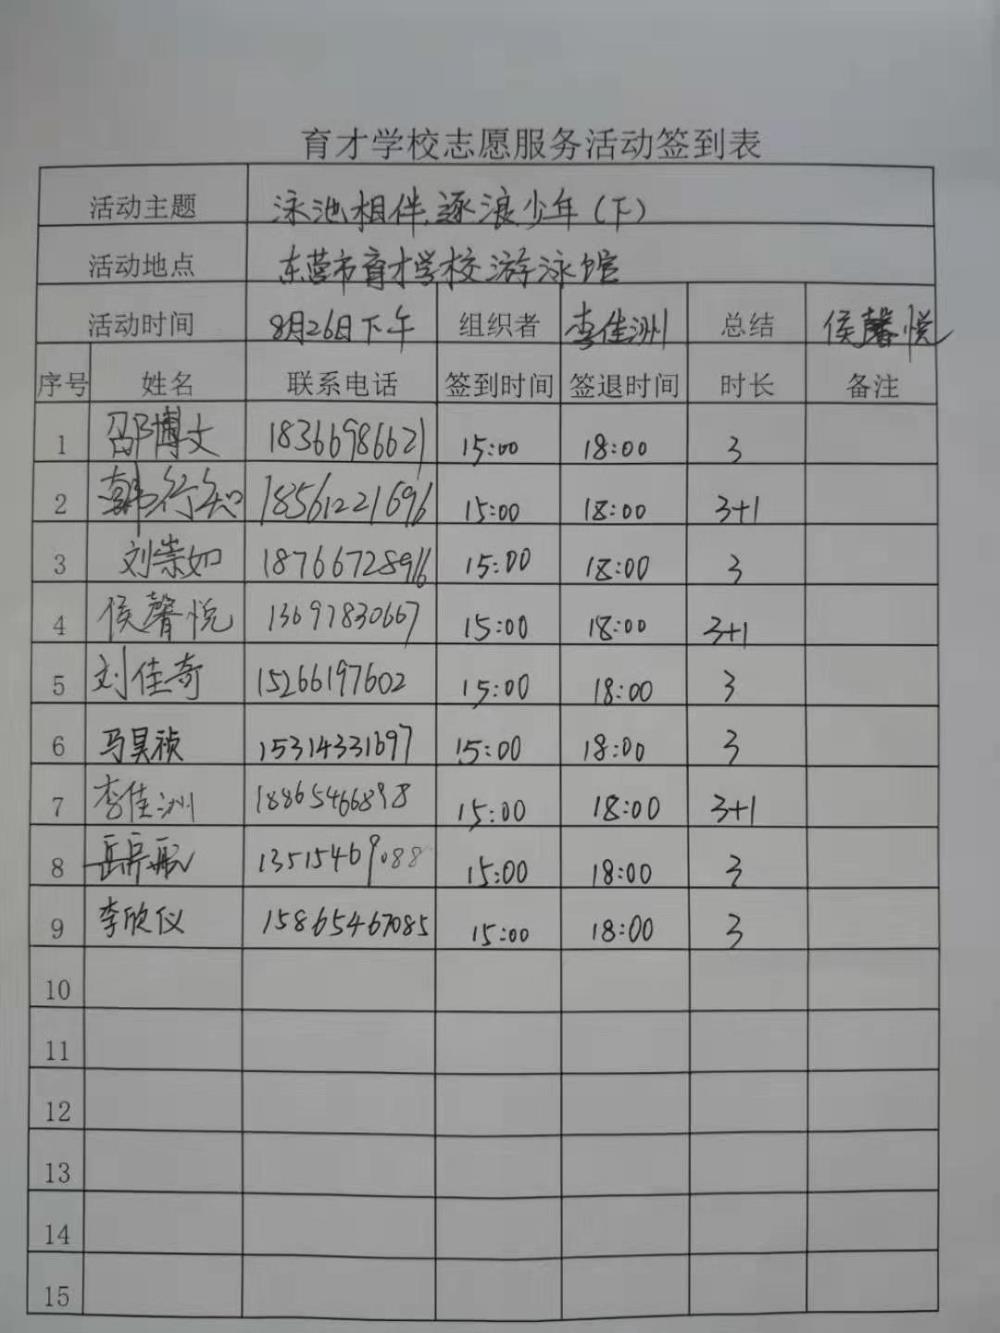 育才学校志愿服务活动签到表
活动主题 泳池相伴,逐浪少年(下)
活动地点 东营市育才学校游泳馆
活动时间 8月26日下午 组织者 李佳洲 总结 侯馨悦
序号 姓名 联系电话 签到时间 签退时间 时长 备注
1 邵博文 18366986621 15:00 18:00 3
2 韩行知 18561221696 15:00 18:00 3+1
3 刘崇如 18766728916 15:00 18:00 3
4 侯馨悦 13697830667 15:00 18:00 3+1
5 刘佳奇 15266197602 15:00 18:00 3
6 马昊祯 15314331697 15:00 18:00 3
7 李佳洲 18865466898 15:00 18:00 3+1
8 13515469088 15:00 18:00 3
9 李欣仪 15865467085 15:00 18:00 3
10
11
12
13
14
15